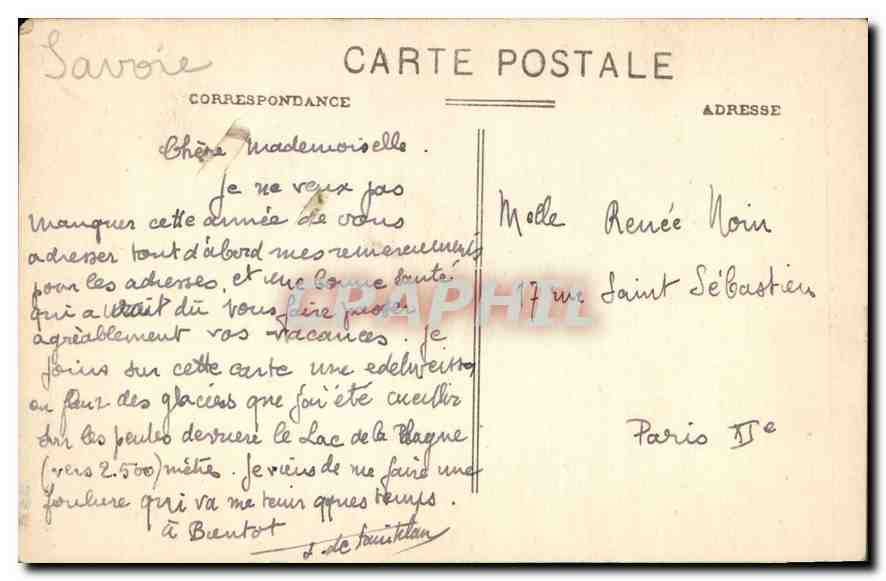 Savoie
CARTE POSTALE
CORRESPONDANCE
ADRESSE
Chère Mademoiselle.
Je ne veux pas
manquer cette année de vous
adresser tout d'abord mes remerciements
pour les adresses, et une bonne santé
qui a dû vous faire passer
agréablement vos vacances. Je
joins sur cette carte une edelweiss
ou fleur des glaciers que j'ai été cueillir
sur les pentes derrière le Lac de la Plagne
(vers 2.500) mètres. Je viens de me faire une
foulure qui va me tenir qques temps.
à Bientot
Melle Renée Noin
17 rue Saint Sébastien
Paris XIe
CPAPHIL